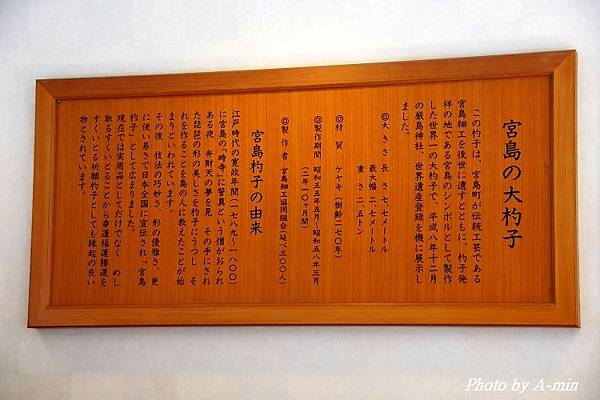 宮島の大杓子
この杓子は、宮島町が伝統工芸である
宮島細工を後世に遺すとともに、杓子発
祥の地である宮島のシンボルとして製作
した世界一の大杓子で、平成八年十二月
の厳島神社、世界遺産登録を機に展示し
ました。
◎大きさ 長さ 七、七メートル
最大幅 二、七メートル
重さ 二、五トン
◎材質 ケヤキ（樹齢二七〇年）
◎製作期間 昭和五五年五月〜昭和五八年三月
（二年一〇ヶ月間）
◎製作者 宮島細工協同組合（延べ三〇〇人）
宮島杓子の由来
江戸時代の寛政年間（一七八九〜一八〇〇）
に宮島の「時寺」に誓真という僧がおられ
ある夜、弁財天の夢を見、その手にされ
た琵琶の形の美しい線を杓子にうつし、そ
れを作ることを島の人に教えたことが始
まりといわれています。
その後、技法の巧妙さ、形の優雅さ、更
に使い易さで日本全国に宣伝され「宮島
杓子」として広まりました。
現在では実用品としてだけでなく、めし
取るすくいとることから幸運福運勝運を
すくいとる祈願杓子としても縁起の良い
物とされています。
Photo by A-min